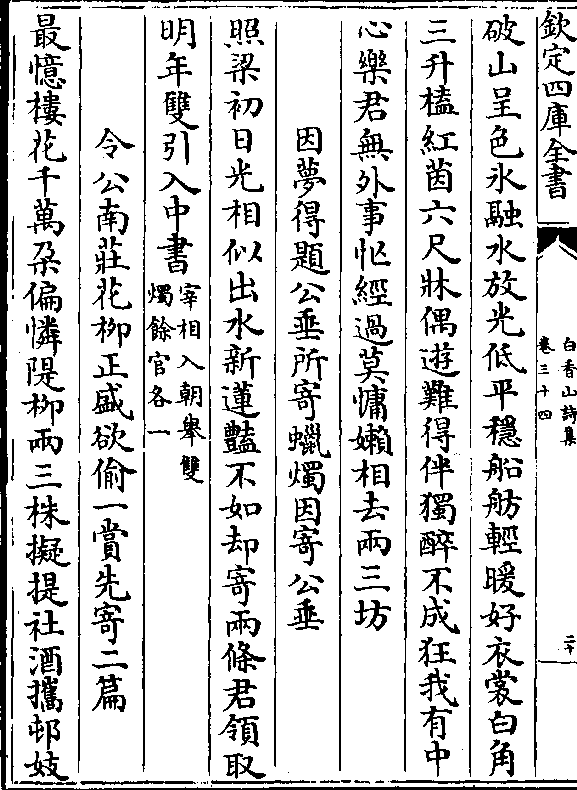 欽定四庫全書
白香山詩集
卷三十四
二十
破山呈色氷融水放光低平穩船舫輕暖好衣裳白角
三升榼紅茵六尺牀偶遊難得伴獨醉不成狂我有中
心樂君無外事忙經過莫慵嬾相去兩三坊
因夢得題公垂所寄蠟燭因寄公垂
照梁初日光相似出水新蓮豔不如却寄兩條君領取
明年雙引入中書
宰相入朝舉雙
燭餘官各一
令公南莊花柳正盛欲偷一賞先寄二篇
最憶樓花千萬朶偏憐隄柳兩三株擬提社酒攜邨妓